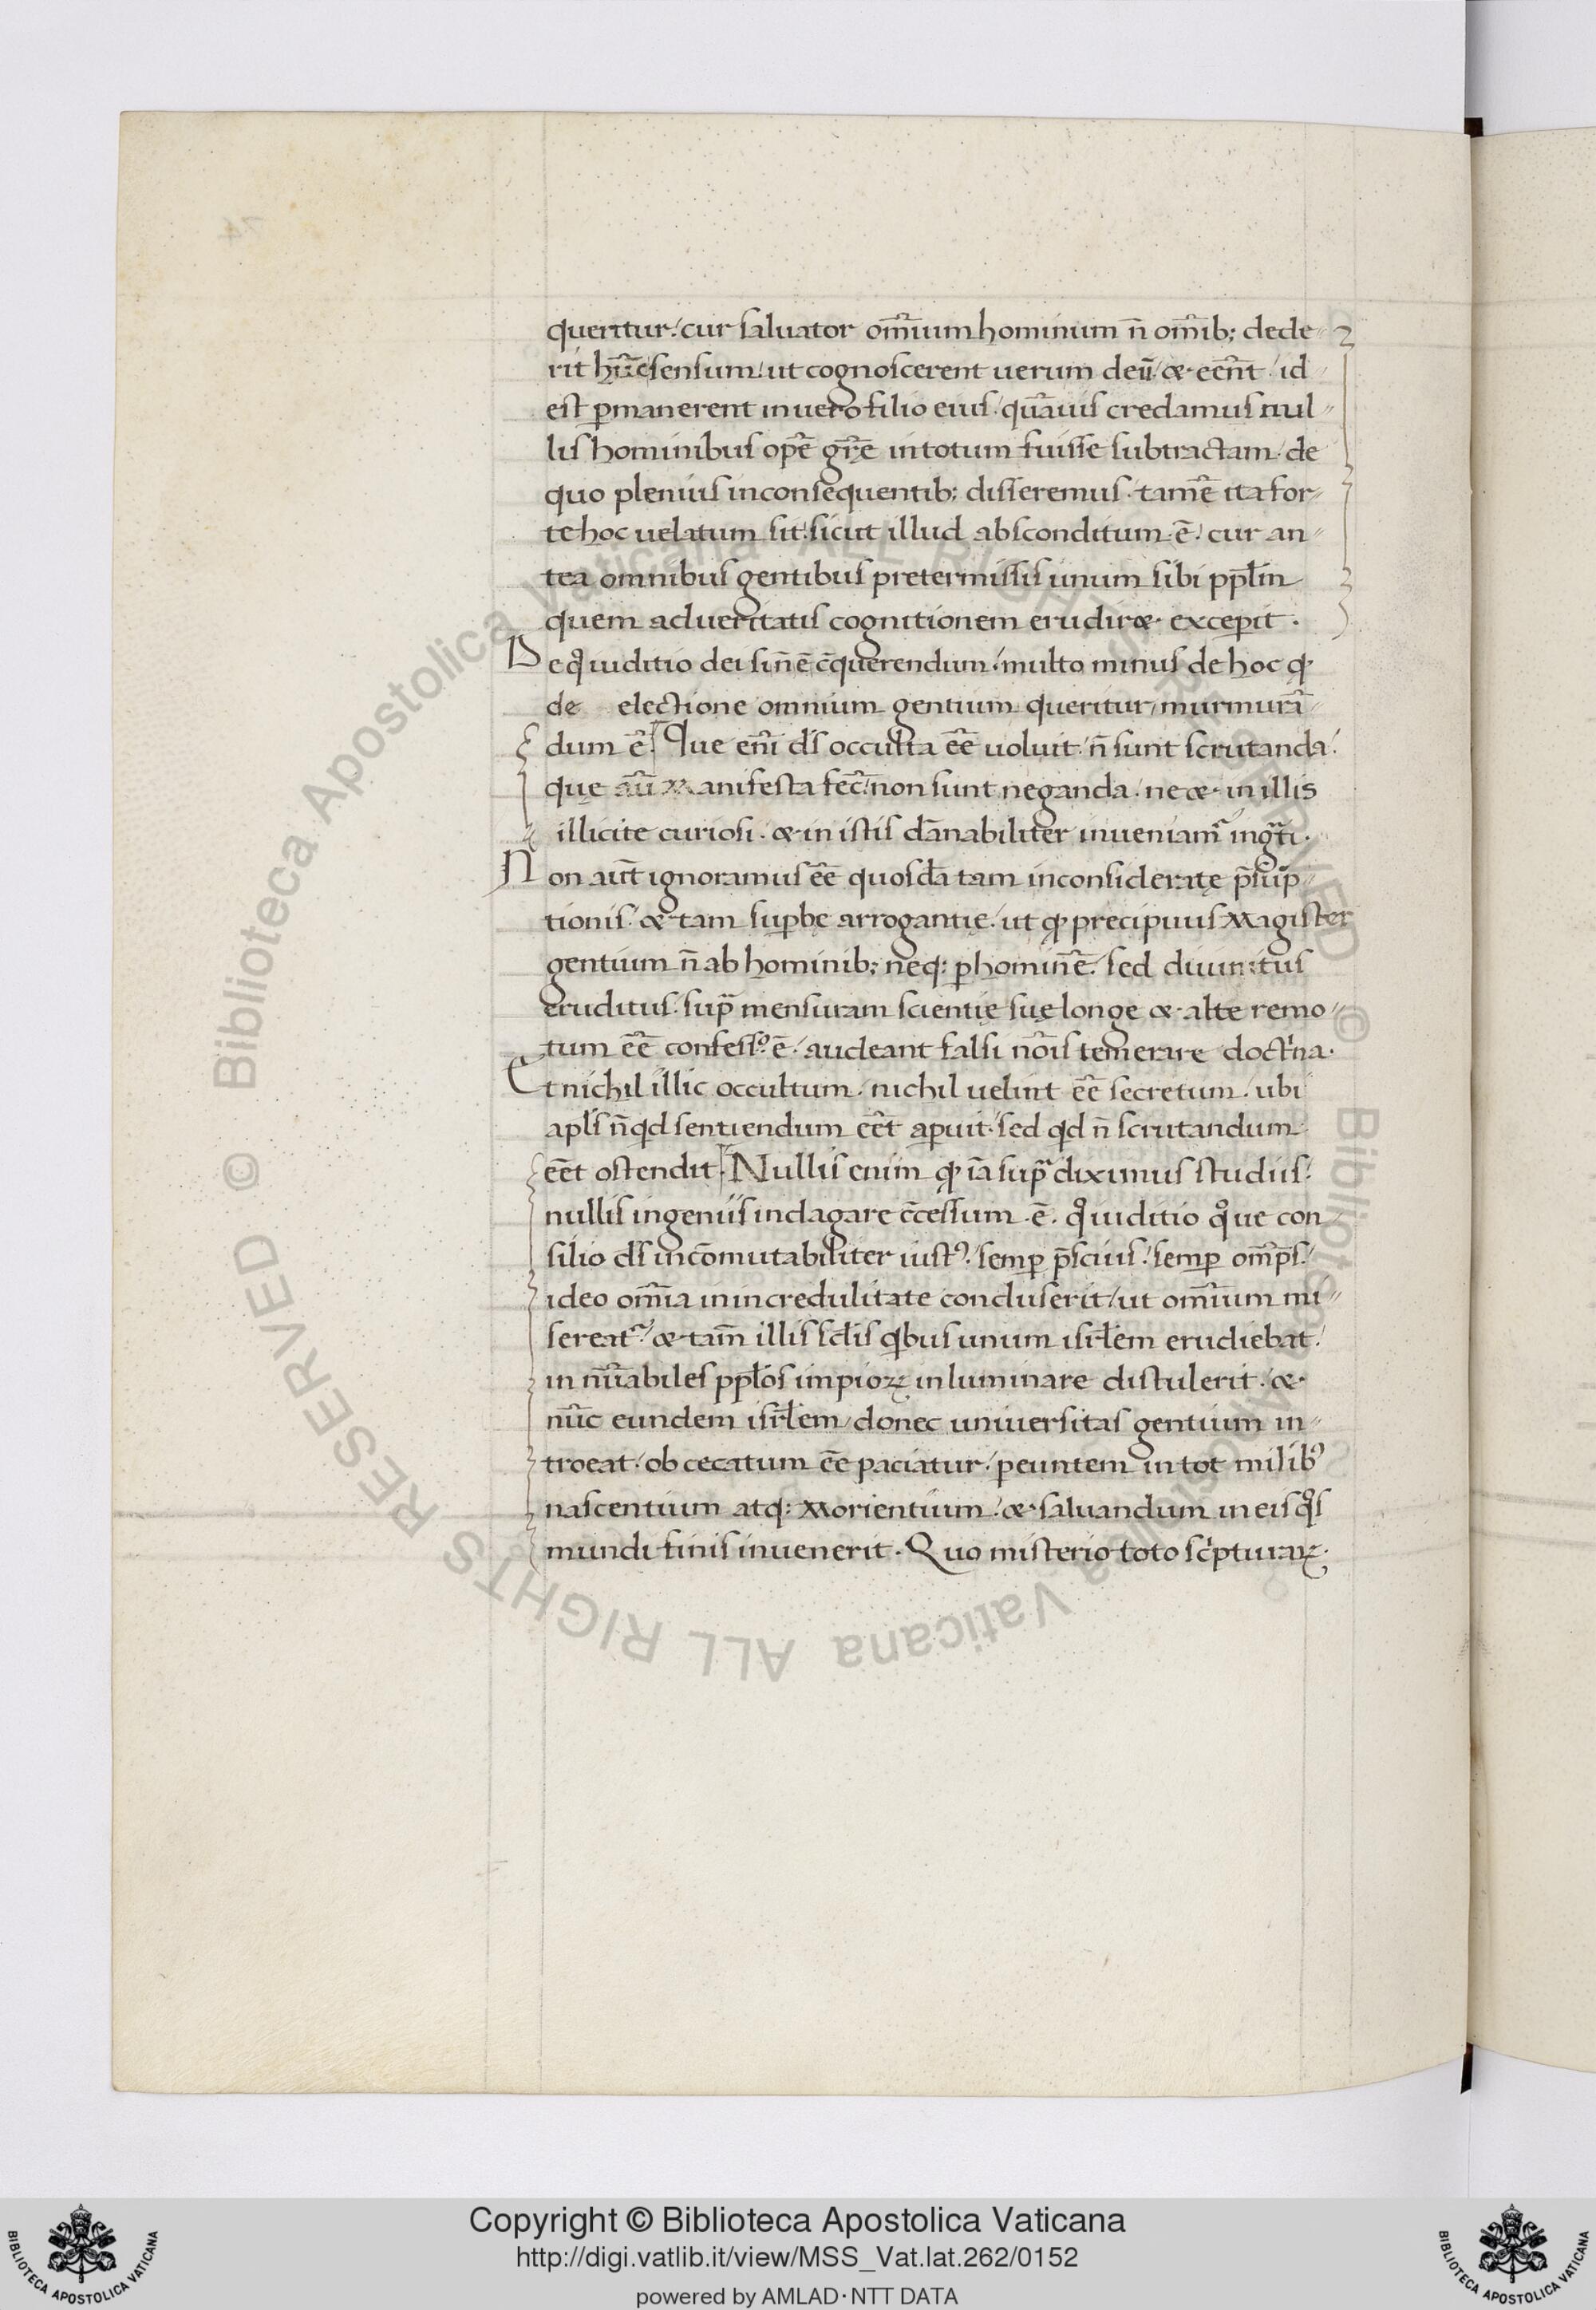 queritur. cur saluator om̃ium hominum ñ om̃ib; dede
rit hũc sensum. ut cognoscerent uerum deũ. & eẽnt id
est ꝑmanerent in uero filio eius. quãuis credamus nul
lis hominibus opẽ grẽ in totum fuisse subtractam. de
quo plenius inconsequentib; disseremus. tamẽ ita for
te hoc uelatum sit. sicut illud absconditum ẽ. cur an
tea omnibus gentibus pretermissis unum sibi ppłm
quem ad ueritatis cognitionem erudir& exceꝑit.
De qͦ iuditio dei si ñ ẽ cõquerendum. multo minus de hoc ꝙ
de electione omnium gentium queritur murmurã
dum ẽ. Que eñi ds̃ occulta eẽ uoluit. ñ sunt scrutanda.
que aũ manifesta fec̃ non sunt neganda. ne & in illis
illicite curiosi. & in istis dãnabiliter inueniamʳ ingᵃti.
Non aut̃ ignoramus eẽ quosdã tam inconsideratę p̃sũp
tionis. & tam suꝑbę arrogantię. ut ꝙ precipuus Magister
gentium ñ ab hominib; neq; ꝑ hominẽ. sed diuinitus
eruditus. sup̃ mensuram scientię suę longe & alte remo
tum eẽ confessꝰ ẽ. audeant falsi nõis temerare doctⁱna.
Et nichil illic occultum. nichil uelint eẽ secretum. ubi
apłs ñ qd sentiendum eẽt aꝑuit. sed qd ñ scrutandum
eẽt ostendit. Nullis enim ꝙ iã supᵃ diximus studiis.
nullis ingeniis indagare cõcessum ẽ. qͦ iuditio qͦ ue con
silio ds̃ incõmutabiliter iustꝰ. semꝑ p̃scius. semꝑ om̃ps̃.
ideo om̃ia in incredulitate concluserit. ut om̃ium mi
sereatʳ. & tam̃ illis scłis qⁱbus unum isrłem erudiebat.
in nũabiles ppłos impioꝝ inluminare distulerit. &
nũc eundem isrłem donec uniuersitas gentium in
troeat. ob cecatum eẽ paciatur. ꝑeuntem in tot milibꝰ
nascentium atq; Morientium. & saluandum in eis qͦs
mundi finis inuenerit. Quo misterio toto scⁱpturaꝝ.
Copyright © Biblioteca Apostolica Vaticana
http://digi.vatlib.it/view/MSS_Vat.lat.262/0152
powered by AMLAD·NTT DATA
BIBLIOTECA APOSTOLICA VATICANA
BIBLIOTECA APOSTOLICA VATICANA
© Biblioteca Apostolica Vaticana ALL RIGHTS RESERVED © Biblioteca Apostolica Vaticana ALL RIGHTS RESERVED